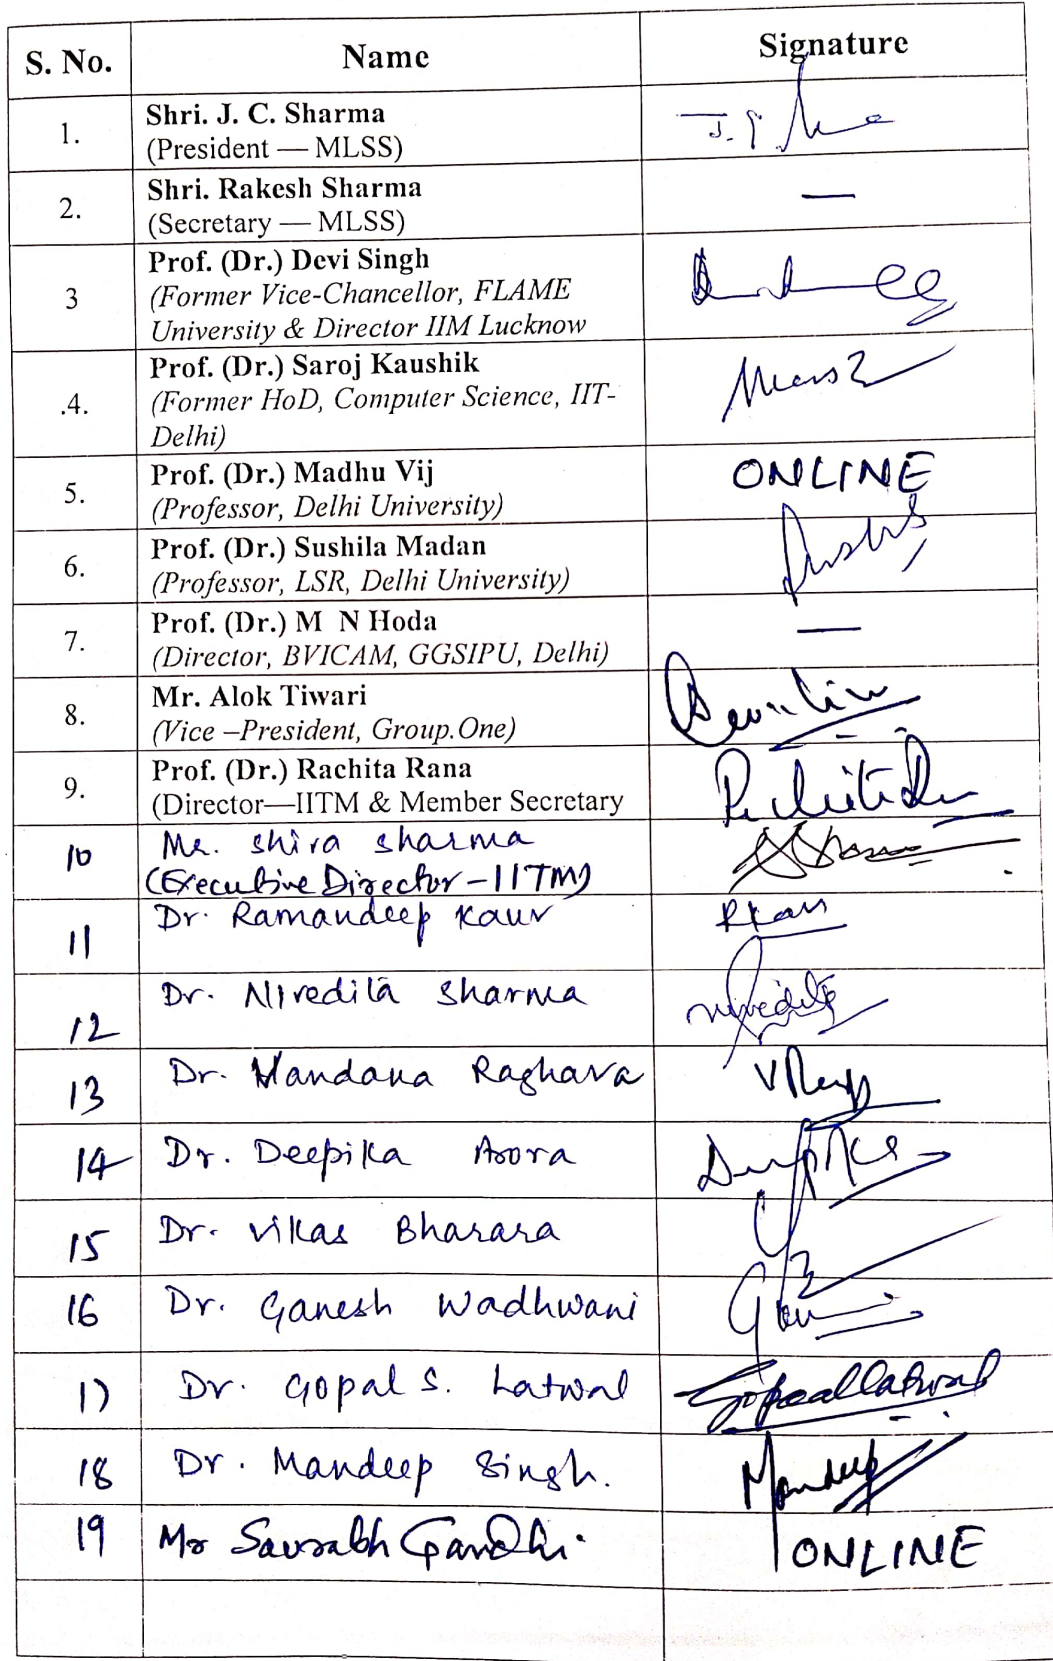 S. No. Name Signature
1. Shri. J. C. Sharma
(President — MLSS)
2. Shri. Rakesh Sharma —
(Secretary — MLSS)
3 Prof. (Dr.) Devi Singh
(Former Vice-Chancellor, FLAME
University & Director IIM Lucknow
.4. Prof. (Dr.) Saroj Kaushik
(Former HoD, Computer Science, IIT-
Delhi)
5. Prof. (Dr.) Madhu Vij ONLINE
(Professor, Delhi University)
6. Prof. (Dr.) Sushila Madan
(Professor, LSR, Delhi University)
7. Prof. (Dr.) M N Hoda —
(Director, BVICAM, GGSIPU, Delhi)
8. Mr. Alok Tiwari
(Vice –President, Group.One)
9. Prof. (Dr.) Rachita Rana
(Director—IITM & Member Secretary
10 Mr. Shiva Sharma
(Executive Director - IITM)
11 Dr. Ramandeep Kaur Rkaur
12 Dr. Nivedita Sharma Nivedita
13 Dr. Vandana Raghava
14 Dr. Deepika Arora Deepika
15 Dr. Vikas Bharara
16 Dr. Ganesh Wadhwani
17 Dr. Gopal S. Latwal Gopallatwal
18 Dr. Mandeep Singh. Mandeep
19 Mr Saurabh Gandhi. ONLINE